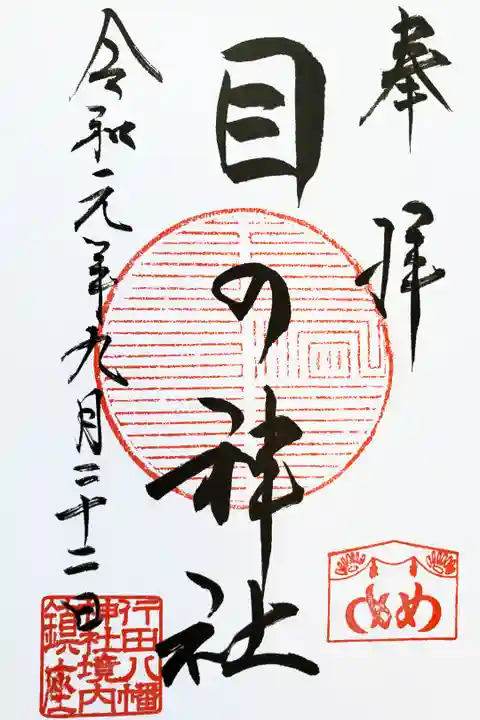 奉拝
目の神社
令和元年九月二十二日
行田八幡
神社境内
鎮座
めめ